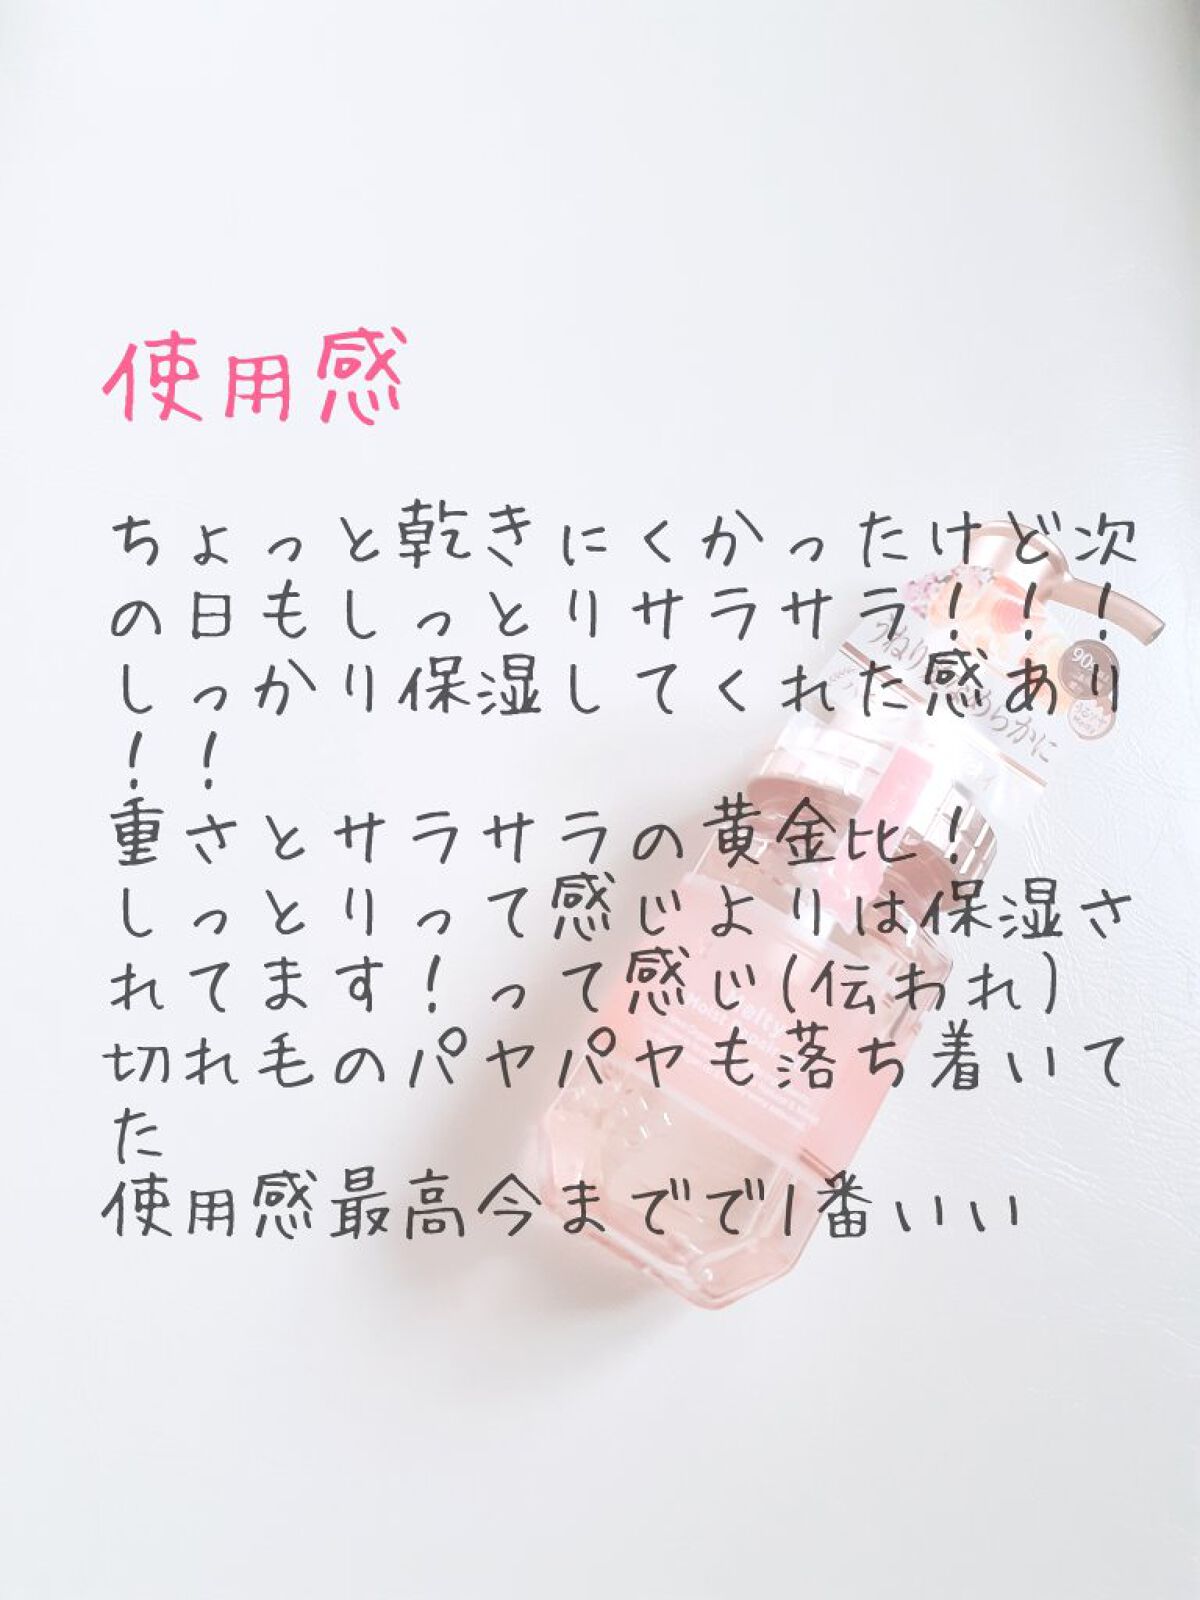 使用感
ちょっと乾きにくかったけど次
の日もしっとりサラサラ！！！
しっかり保湿してくれた感あり
！！
重さとサラサラの黄金比！
しっとりって感じよりは保湿さ
れてます！って感じ(伝われ)
切れ毛のパヤパヤも落ち着いて
た
使用感最高今までで1番いい
うねり
めらかに
90
Melty
Moist